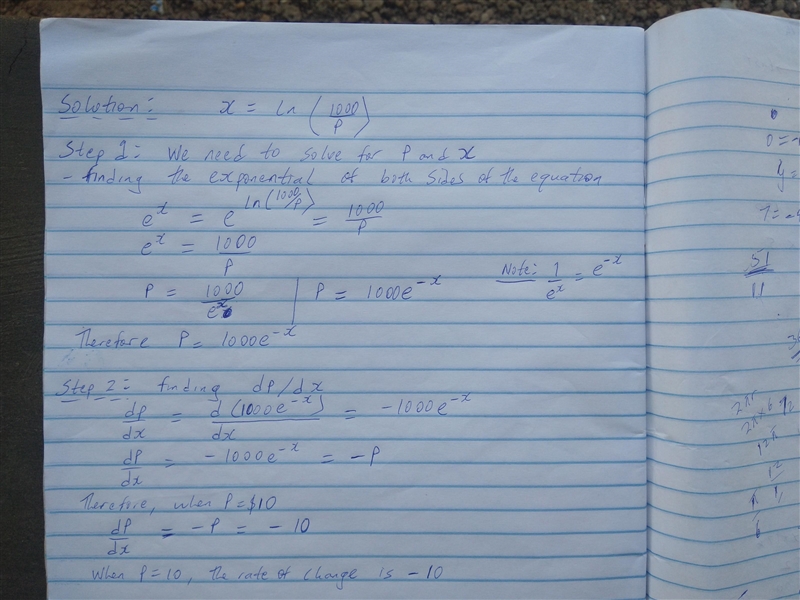 Solution: x = ln (1000/P)
Step 1: We need to solve for P and x
- finding the exponential of both sides of the equation
e^x = e^ln(1000/P) = 1000/P
e^x = 1000/P
P = 1000/e^x | P = 1000e^-x Note: 1/e^x = e^-x
Therefore P = 1000e^-x
Step 2: finding dP/dx
dP/dx = d(1000e^-x)/dx = -1000e^-x
dP/dx = -1000e^-x = -P
Therefore, when P=$10
dP/dx = -P = -10
When P=10, the rate of change is -10
51
11
2πr
12π
12
6